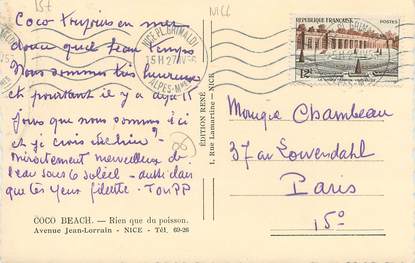 15t
NICE
Coco toujours en mer
douce quel beau temps
Nous sommes très heureux
et pourtant il y a déjà 15
jours que nous sommes ici
et je crois
Miroitement merveilleux de
l'eau sous le soleil - aussi clair
que tes yeux fillette.
COCO BEACH. — Rien que du poisson.
Avenue Jean-Lorrain - NICE - Tél. 69-26
EDITION RENÉ
1, Rue Lamartine - NICE
NICE PL. GRIMALDI
15H 27
ALPES-MMES
REPUBLIQUE FRANÇAISE
POSTES
12F
Monique Chambeau
37 av Lowendahl
Paris
15°